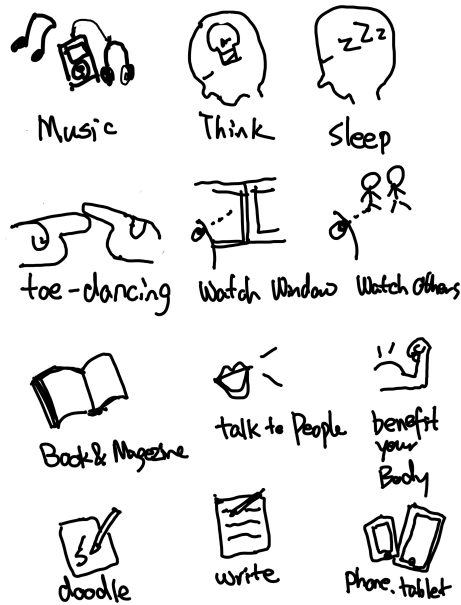 Music Think Sleep
zzz
toe-dancing Watch Window Watch Others
Book & Magazine talk to People benefit
your
Body
doodle write Phone. tablet